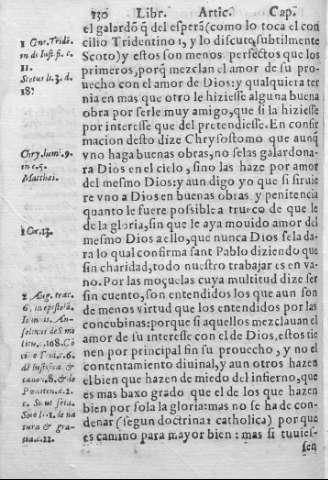 130 Libr. Artic. Cap.
el galardõ q̃ del esperã(como lo toca el con
cilio Tridentino 1, y lo discute subtilmente
Scoto)y estos son menos perfectos que los
primeros,porq̃ mezclan el amor de su pro-
uecho con el amor de Dios:y qualquiera ter
nia en mas que otro le hiziesse alguna buena
obra por serle muy amigo,que si la hiziesse
por interesse que del pretendiesse. En confir
macion desto dize Chrysostomo que aunq̃
vno haga buenas obras,no selas galardona-
ra Dios en el cielo, sino las haze por amor
del mesmo Dios:y aun digo yo que si siruie
re vno a Dios en buenas obras y penitencia
quanto le fuere possible a trueco de que le
de la gloria,sin que le aya mouido amor del
mesmo Dios a ello,que nunca Dios sela da-
ra lo qual confirma sant Pablo diziendo que
sin charidad,todo nuestro trabajar es en va-
no. Por las moçuelas cuya multitud dize ser
sin cuento, son entendidos los que aun son
de menos virtud que los entendidos por las
concubinas:porque si aquellos mezclauan el
amor de su interesse con el de Dios,estos tie
nen por principal fin su prouecho, y no el
contentamiento diuinal,y aun otros hazen
el bien que hazen de miedo del infierno,que
es mas baxo grado que el de los que hazen
bien por sola la gloria:mas no se ha de con-
denar (segun doctrina catholica) por que
es camino para mayor bien : mas si tuuies-
sen
1 Conc. Tridē.
in di Iusti. fi. c.
11.
Scotus li. 3. d.
18.
Chry. Jom. 9.
in c. 5.
Matthei.
1 Co. 13.
2 Aug. trac.
6. in epistola